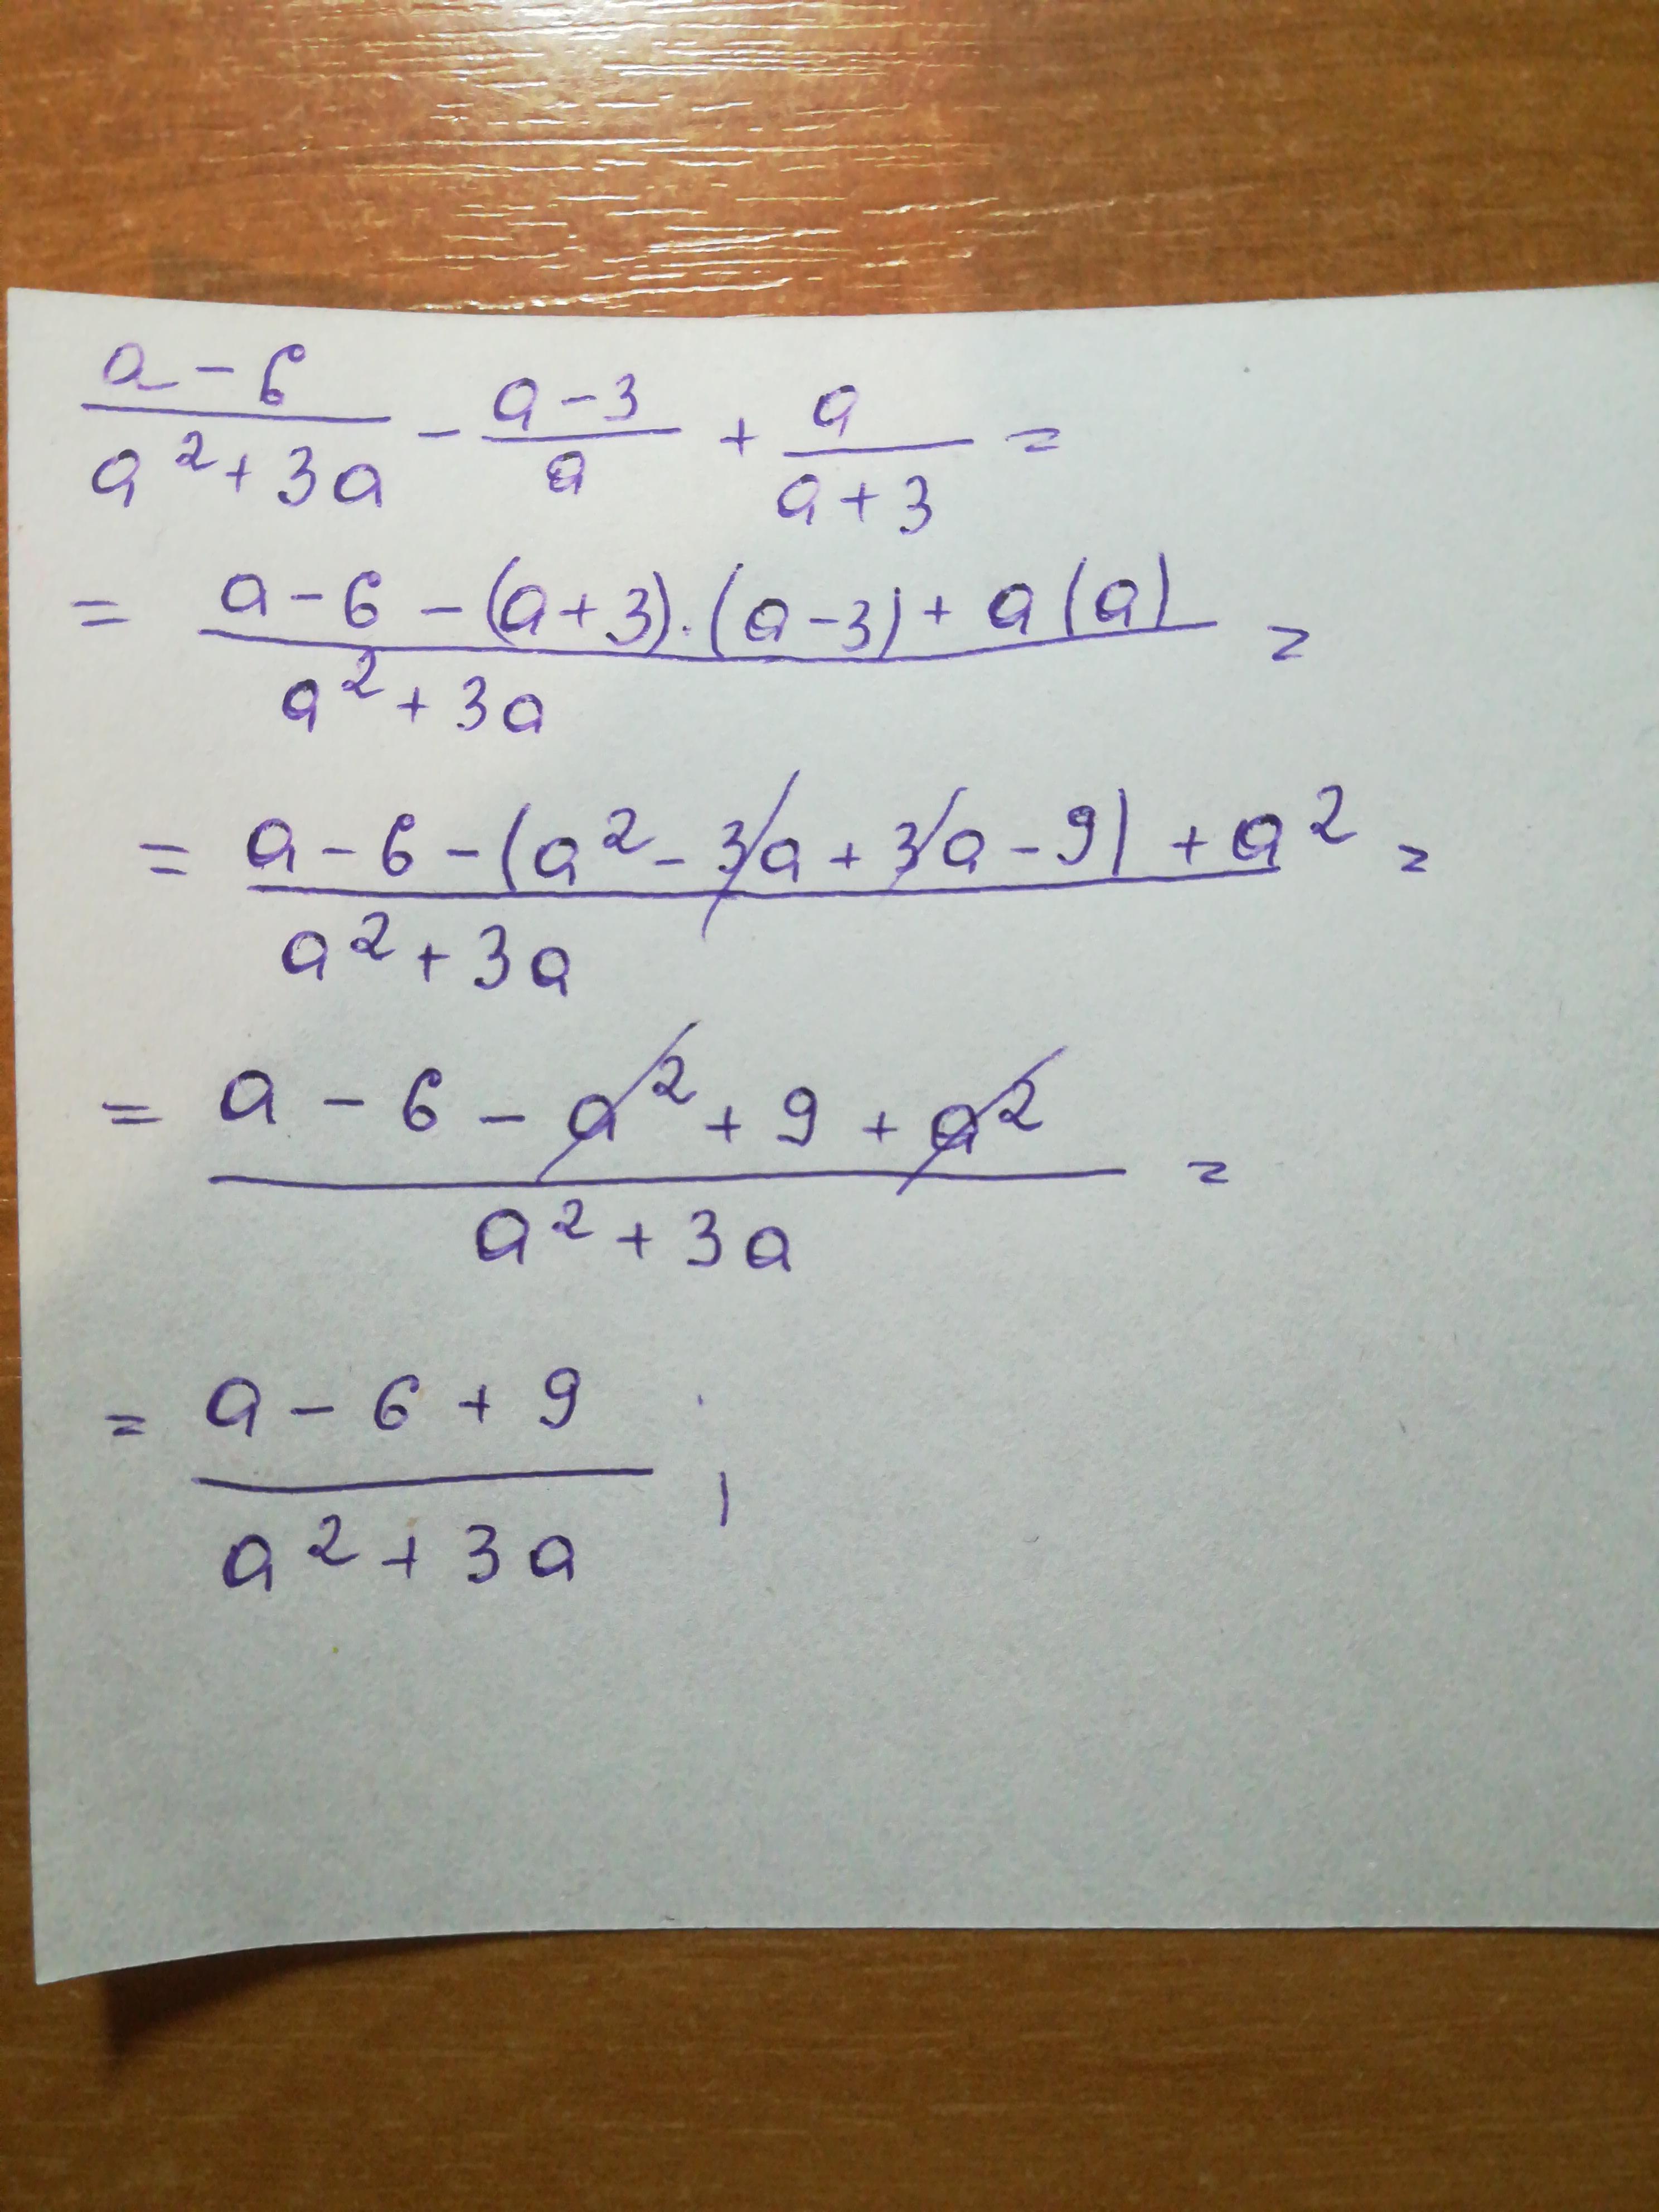 (a - 6)/(a² + 3a) - (a - 3)/a + a/(a + 3) =
= (a - 6 - (a + 3) · (a - 3) + a(a))/(a² + 3a) =
= (a - 6 - (a² - 3a + 3a - 9) + a²)/(a² + 3a) =
= (a - 6 - a² + 9 + a²)/(a² + 3a) =
= (a - 6 + 9)/(a² + 3a) ;